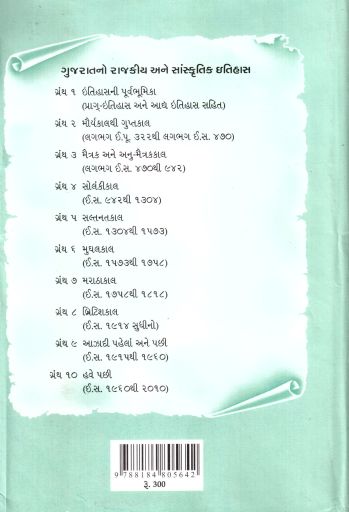 ગુજરાતનો રાજકીય અને સાંસ્કૃતિક ઇતિહાસ
ગ્રંથ ૧ ઇતિહાસની પૂર્વભૂમિકા
(પ્રાગ્-ઇતિહાસ અને આદ્ય ઇતિહાસ સહિત)
ગ્રંથ ૨ મૌર્યકાલથી ગુપ્તકાલ
(લગભગ ઈ.પૂ. ૩૨૨થી લગભગ ઈ.સ. ૪૭૦)
ગ્રંથ ૩ મૈત્રક અને અનુ-મૈત્રકકાલ
(લગભગ ઈ.સ. ૪૭૦થી ૯૪૨)
ગ્રંથ ૪ સોલંકીકાલ
(ઈ.સ. ૯૪૨થી ૧૩૦૪)
ગ્રંથ ૫ સલ્તનતકાલ
(ઈ.સ. ૧૩૦૪થી ૧૫૭૩)
ગ્રંથ ૬ મુઘલકાલ
(ઈ.સ. ૧૫૭૩થી ૧૭૫૮)
ગ્રંથ ૭ મરાઠાકાલ
(ઈ.સ. ૧૭૫૮થી ૧૮૧૮)
ગ્રંથ ૮ બ્રિટિશકાલ
(ઈ.સ. ૧૯૧૪ સુધીનો)
ગ્રંથ ૯ આઝાદી પહેલાં અને પછી
(ઈ.સ. ૧૯૧૫થી ૧૯૬૦)
ગ્રંથ ૧૦ હવે પછી
(ઈ.સ. ૧૯૬૦થી ૨૦૧૦)
9 788184 805642
રૂ. 300